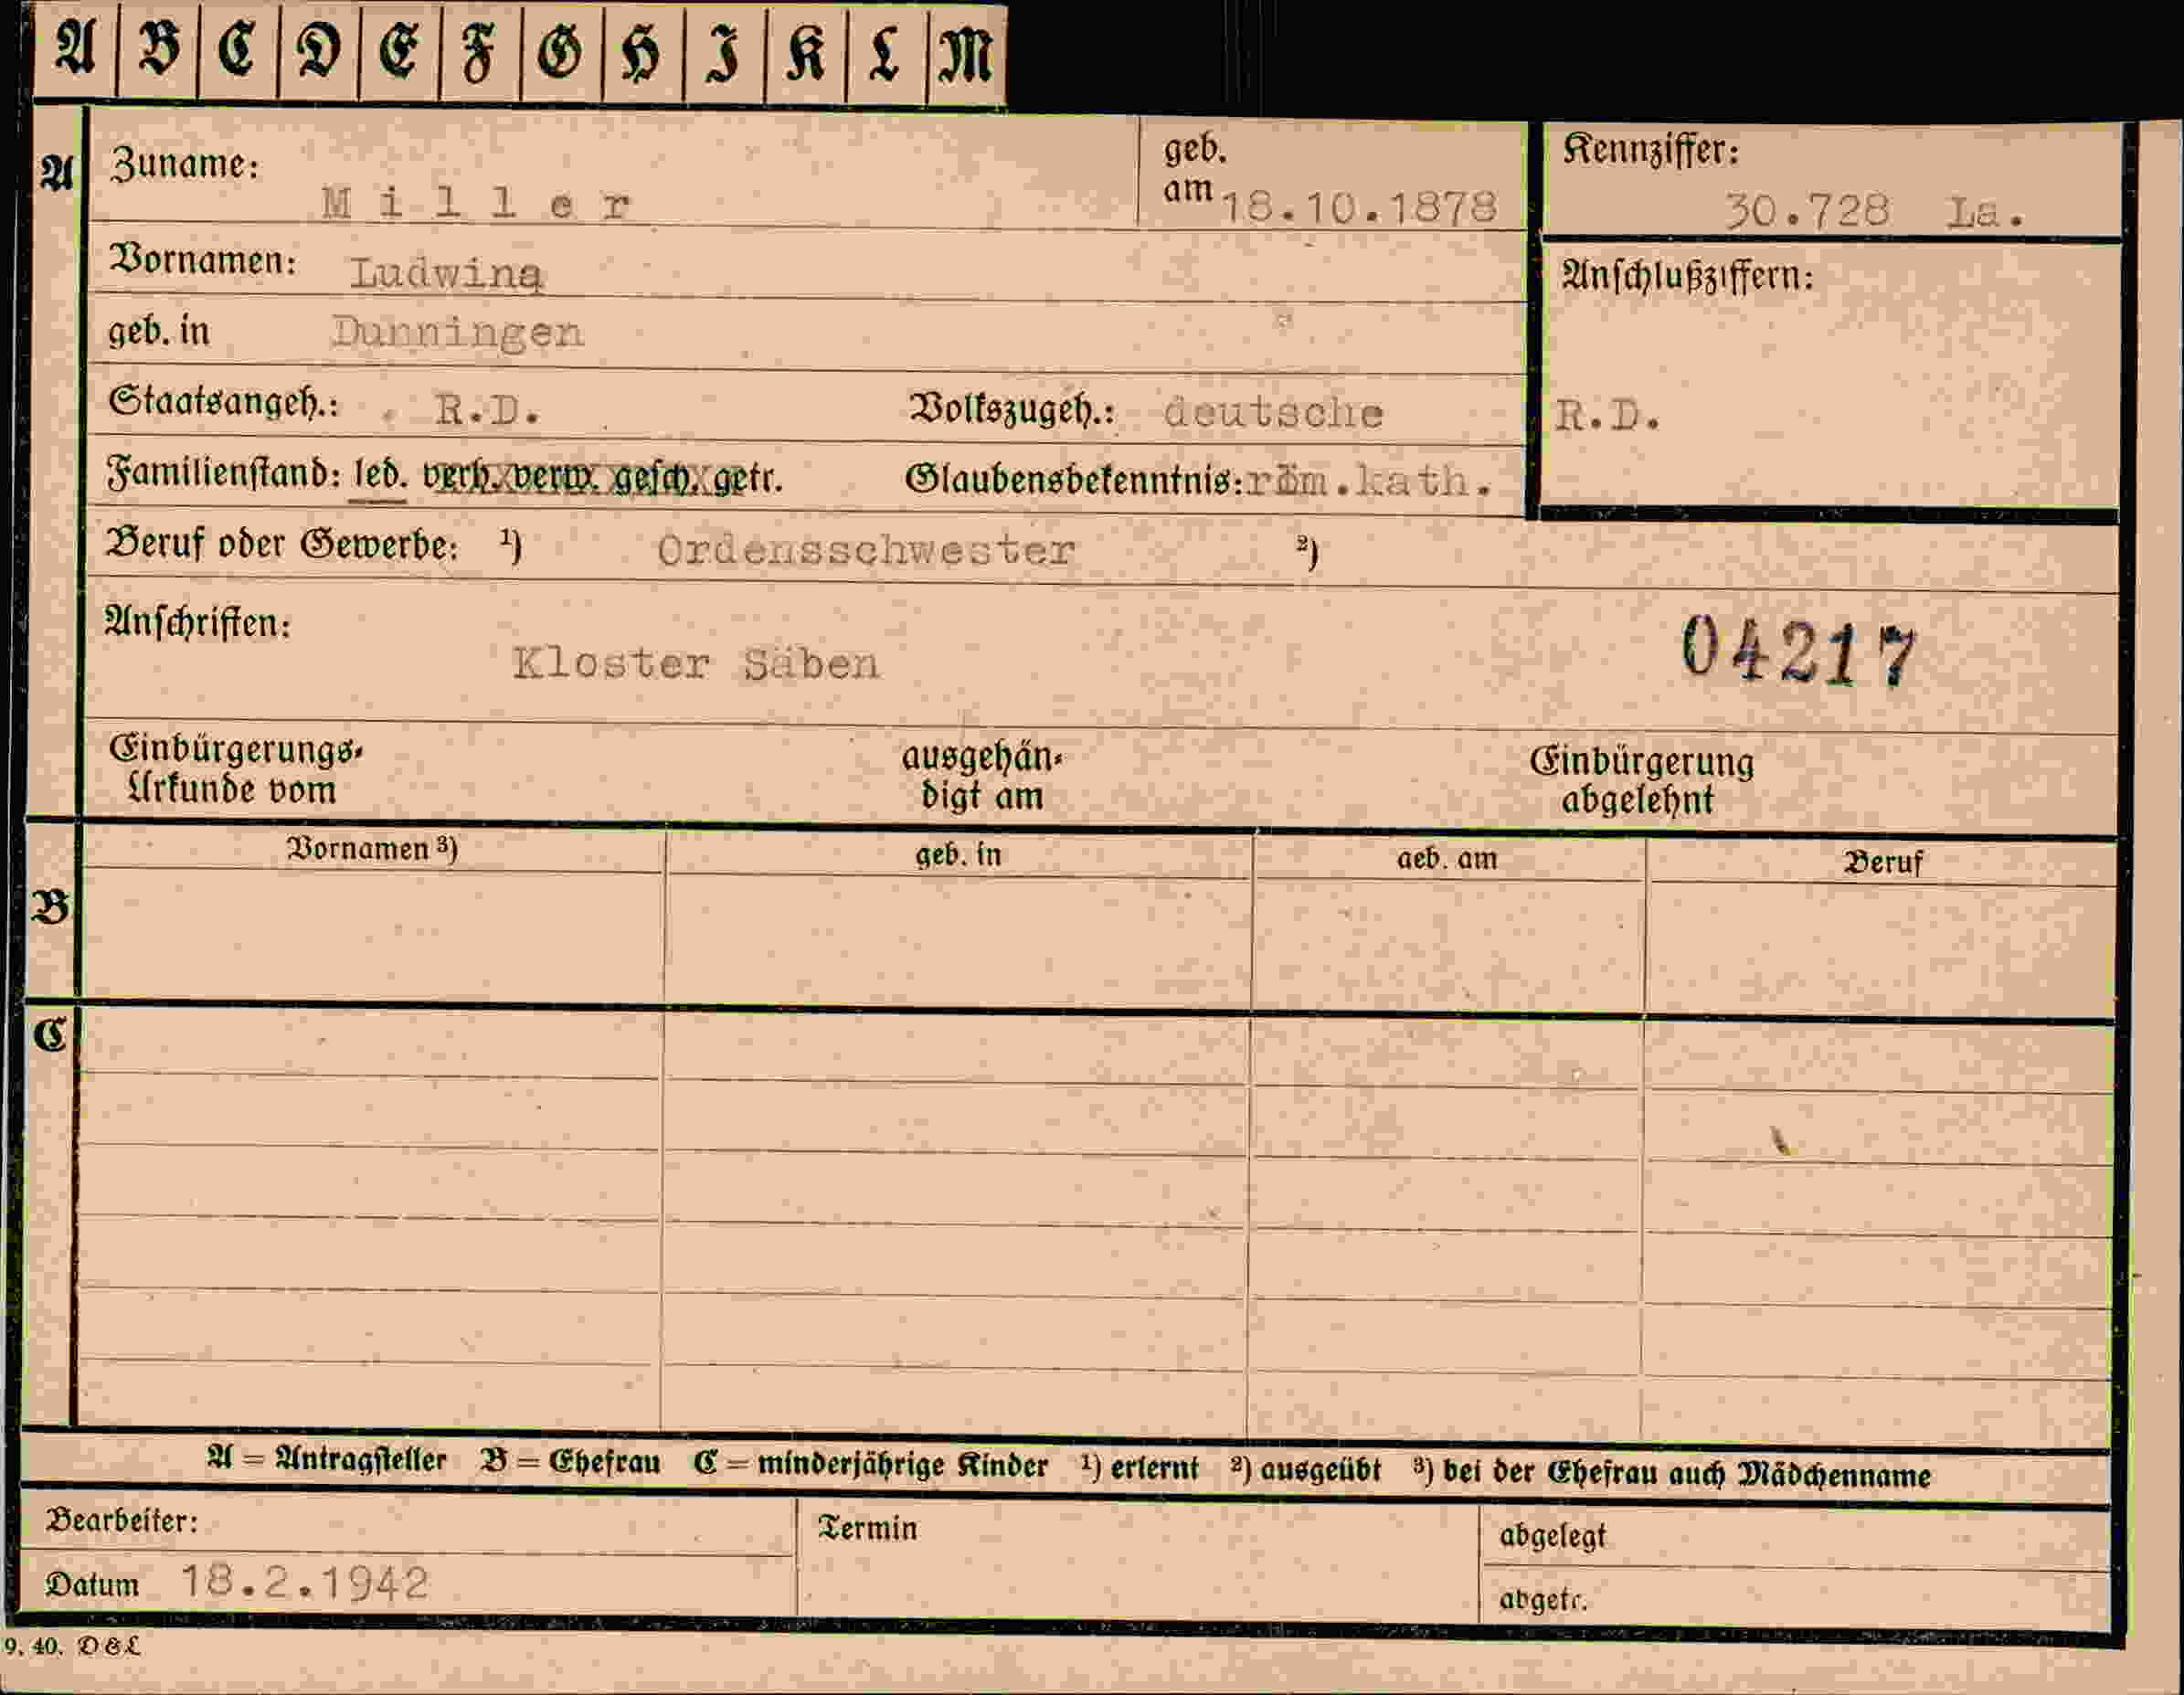 A B C D E F G H I K L M
A Zuname: Miller geb. am 18.10.1878 Kennziffer: 30.728 La.
Vornamen: Ludwina Anschlußziffern:
geb. in Dunningen
Staatsangeh.: R.D. Volkszugeh.: deutsche R.D.
Familienstand: led. verh. verw. gesch. getr. Glaubensbekenntnis: röm.kath.
Beruf oder Gewerbe: ¹) Ordensschwester ²)
Anschriften:
Kloster Säben 04217
Einbürgerungs- ausgehän- Einbürgerung
Urkunde vom digt am abgelehnt
Vornamen ³) geb. in geb. am Beruf
B
C
A = Antragsteller B = Ehefrau C = minderjährige Kinder ¹) erlernt ²) ausgeübt ³) bei der Ehefrau auch Mädchenname
Bearbeiter: Termin abgelegt
Datum 18.2.1942 abgetr.
9. 40. D & L